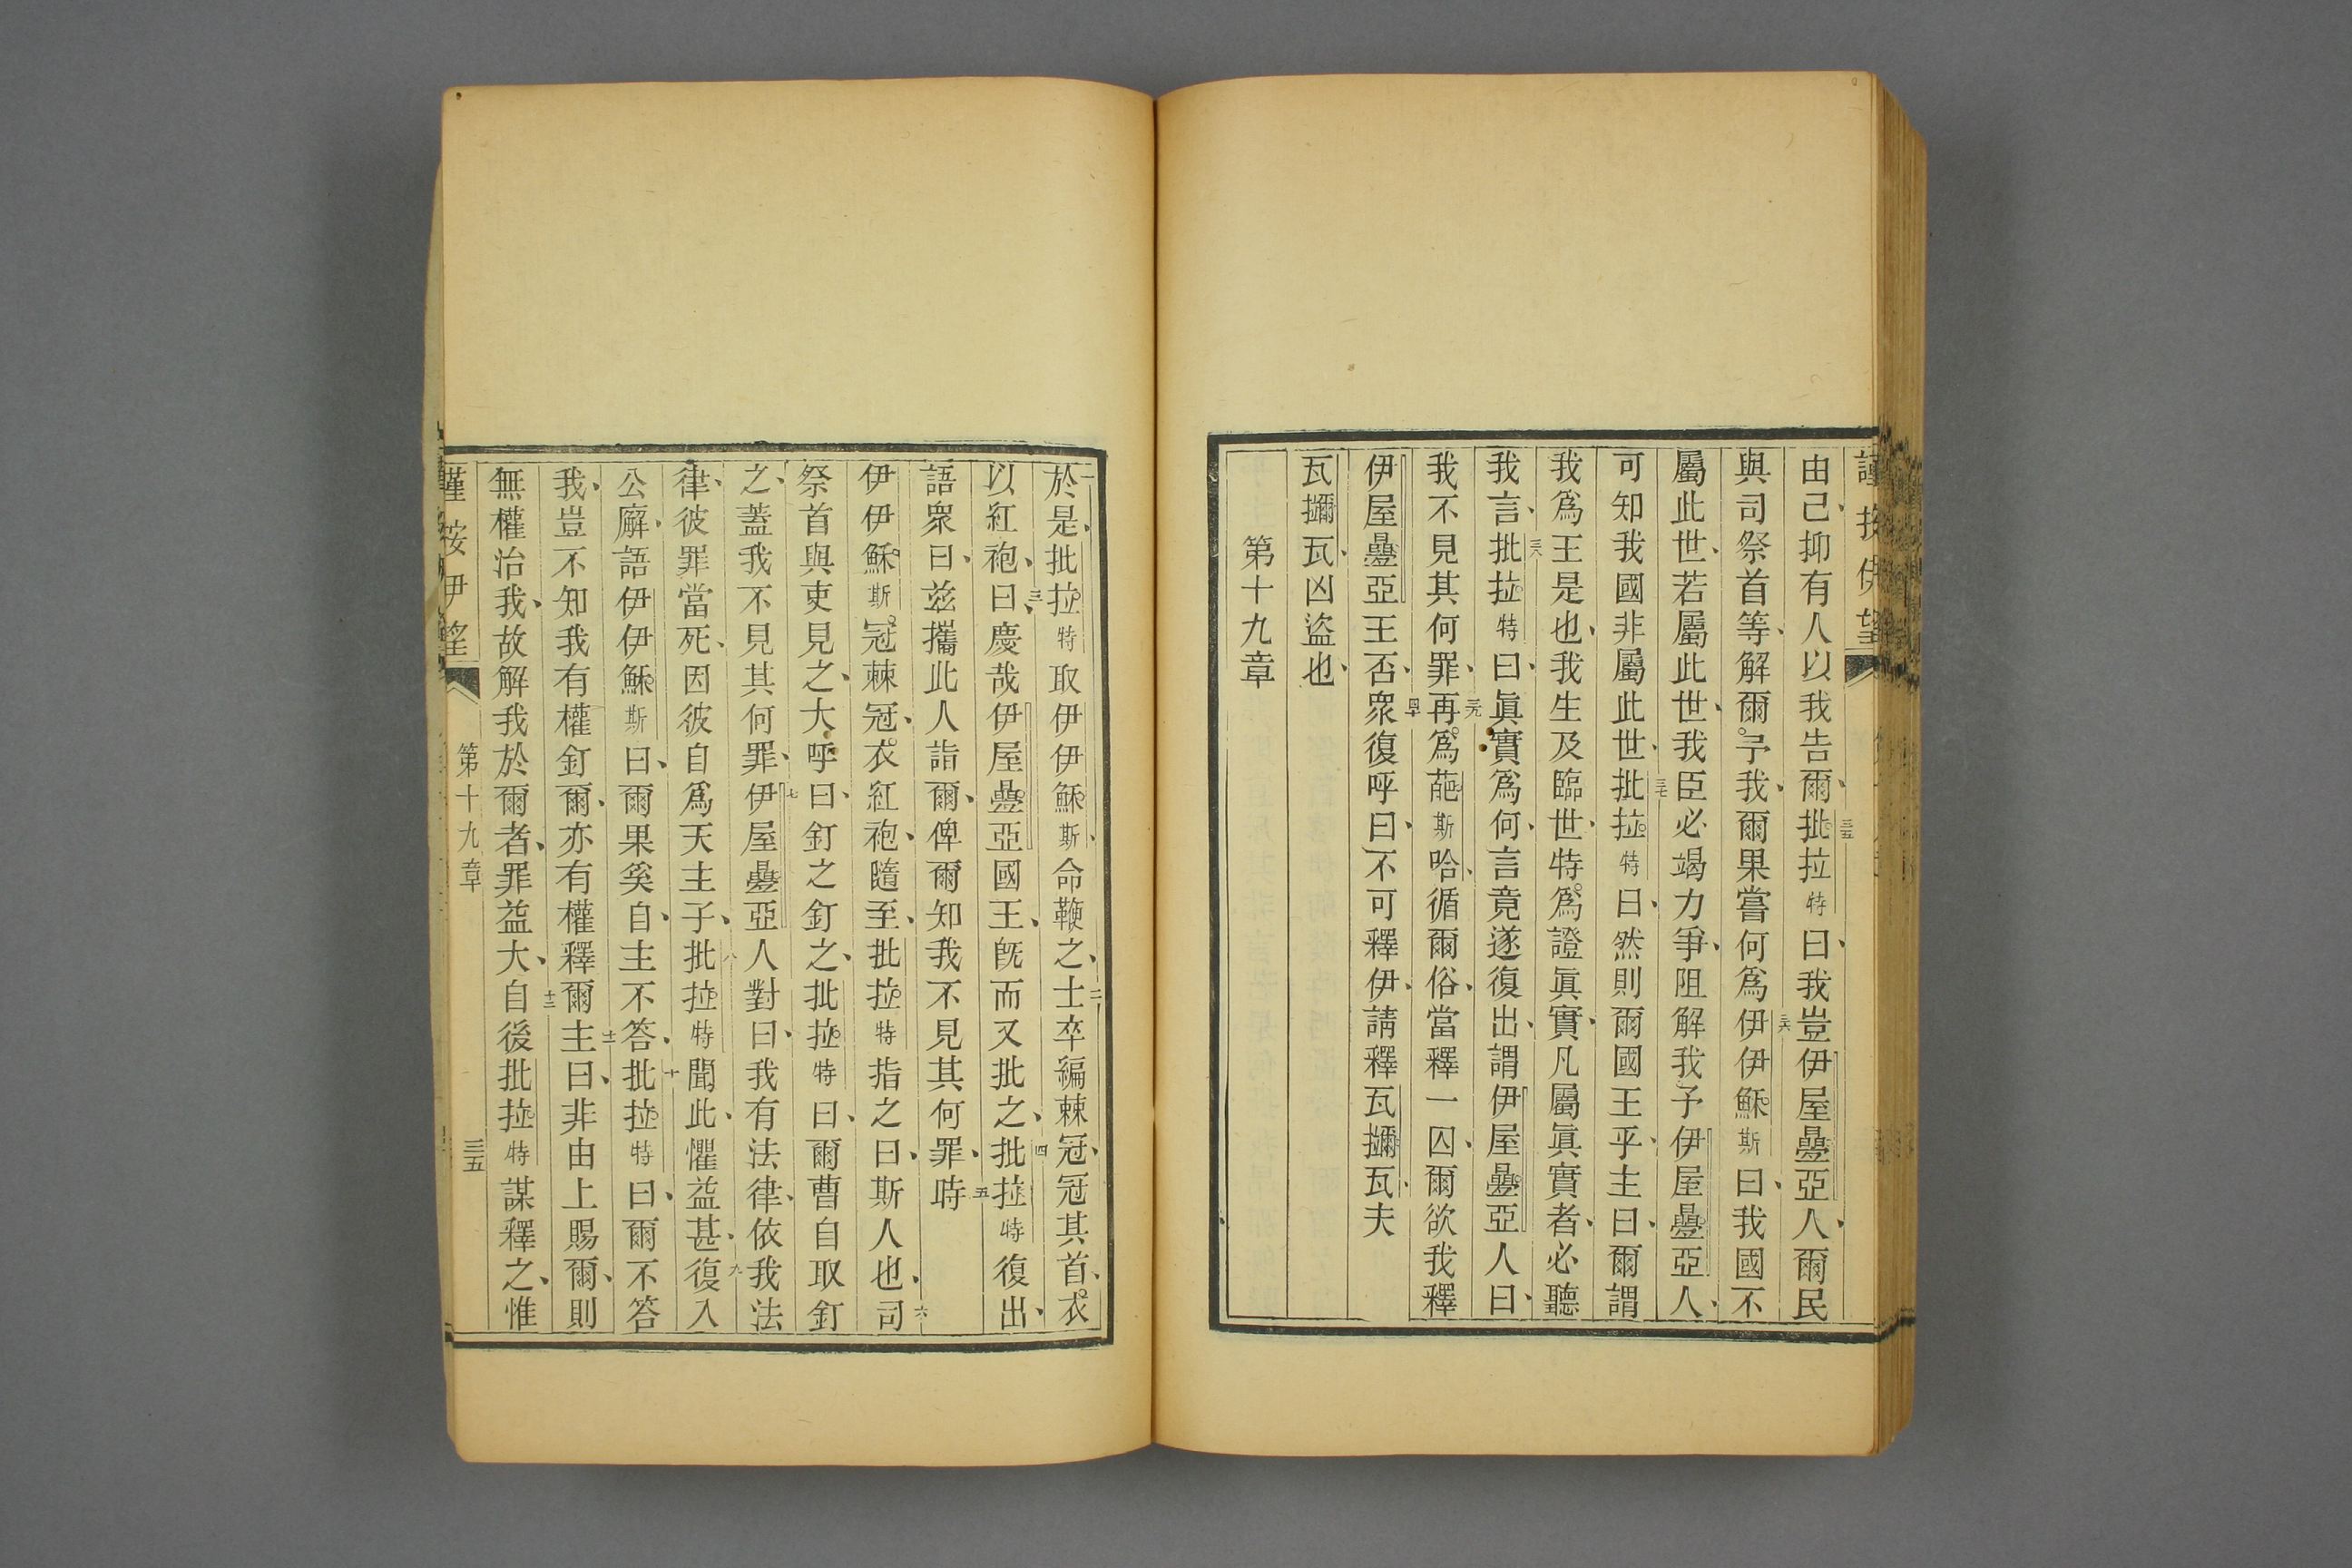 由己、抑有人以我告爾、三五批拉特曰、我豈伊屋疊亞人、爾民
與司祭首等、解爾予我、爾果嘗何爲、三六伊伊穌斯曰、我國不
屬此世、若屬此世、我臣必竭力爭、阻解我予伊屋疊亞人、
可知我國非屬此世、三七批拉特曰、然則爾國王乎、主曰、爾謂
我爲王是也、我生及臨世、特爲證眞實、凡屬眞實者、必聽
我言、三八批拉特曰、眞實爲何、言竟遂復出、謂伊屋疊亞人曰、
我不見其何罪、三九再爲葩斯哈、循爾俗、當釋一囚、爾欲我釋
伊屋疊亞王否、四十衆復呼曰、不可釋伊、請釋瓦攡瓦、夫
瓦攡瓦、凶盜也、
第十九章
一於是、批拉特取伊伊穌斯、命鞭之、二士卒編棘冠、冠其首、衣
以紅袍、三曰、慶哉伊屋疊亞國王、旣而又批之、四批拉特復出、
語衆曰、兹攜此人詣爾、俾爾知我不見其何罪、五時
伊伊穌斯冠棘冠、衣紅袍、隨至、批拉特指之曰、斯人也、六司
祭首與吏見之、大呼曰、釘之釘之、批拉特曰、爾曹自取釘
之、蓋我不見其何罪、七伊屋疊亞人對曰、我有法律、依我法
律、彼罪當死、因彼自爲天主子、八批拉特聞此、懼益甚、九復入
公廨、語伊伊穌斯曰、爾果奚自、主不答、十批拉特曰、爾不答
我、豈不知我有權釘爾、亦有權釋爾、十一主曰、非由上賜爾、則
無權治我、故解我於爾者、罪益大、十二自後批拉特謀釋之、惟
第十九章
三五